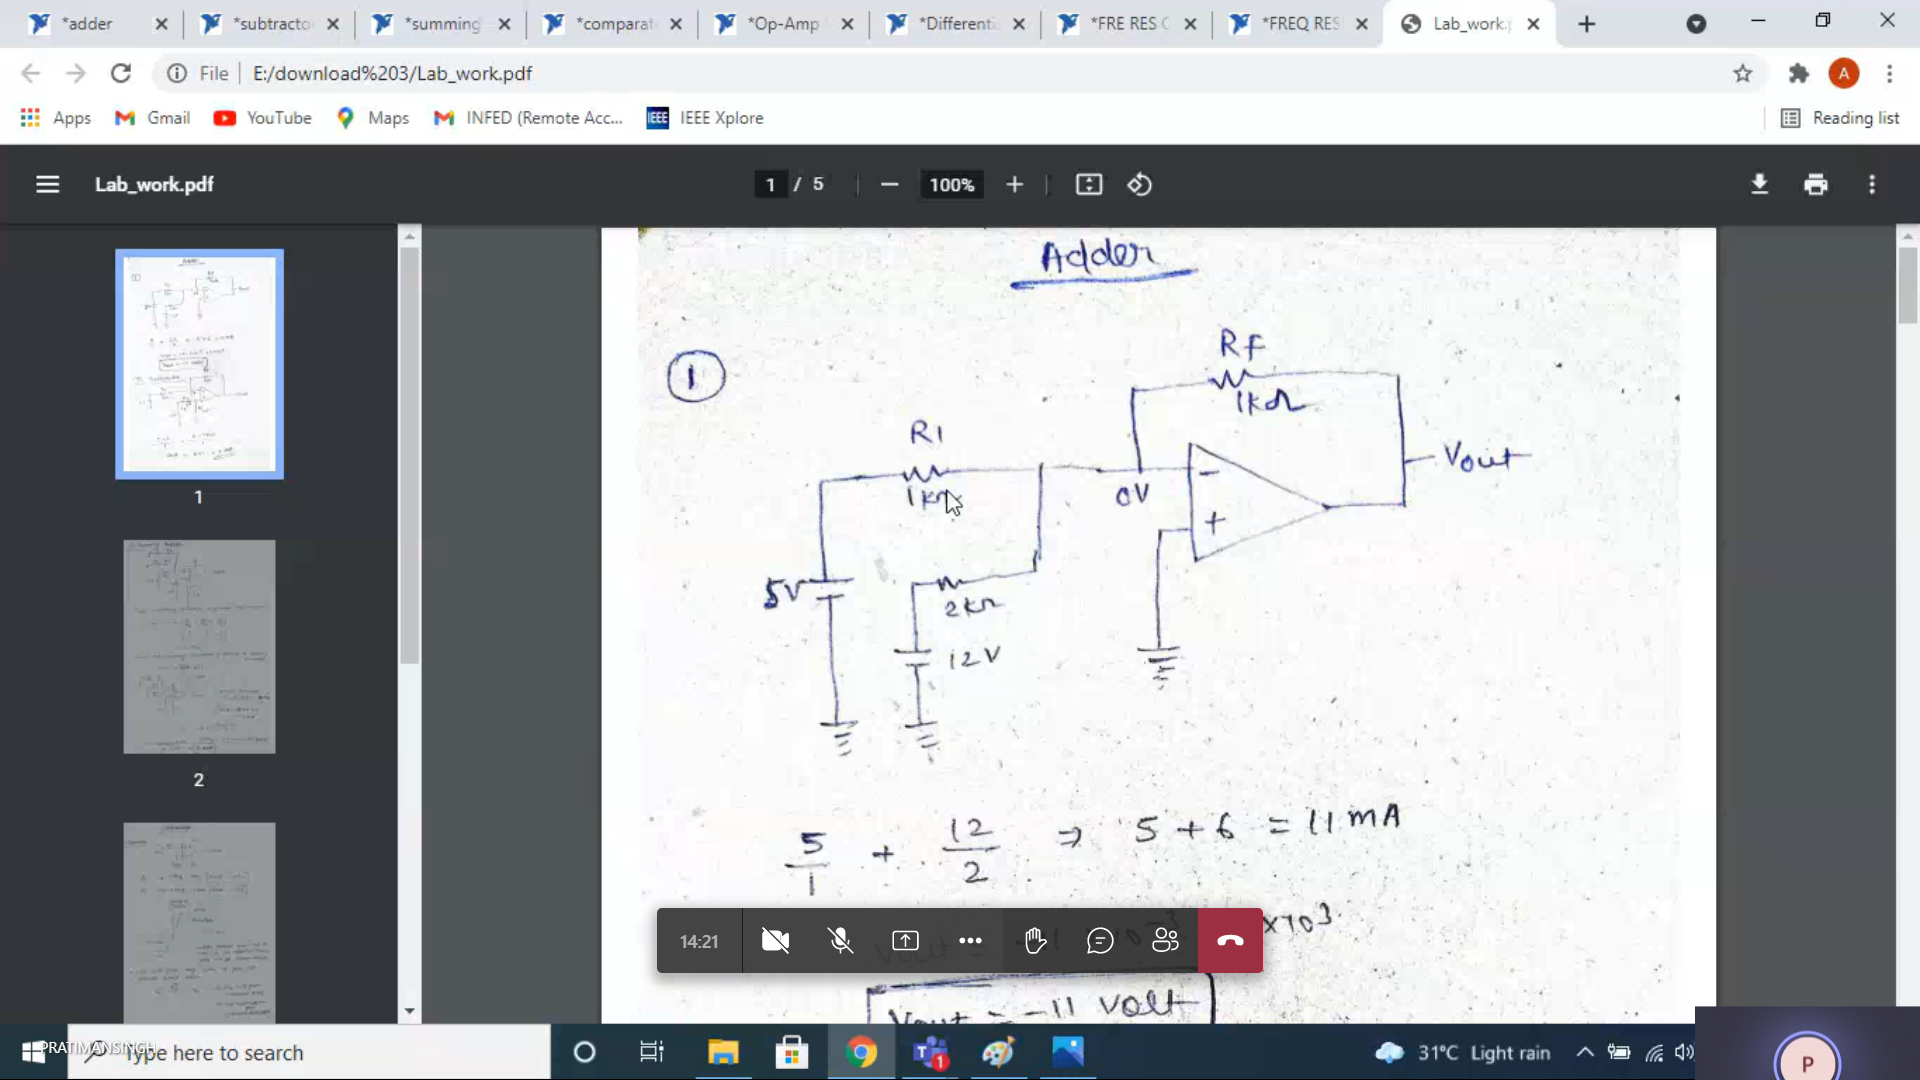 *adder
*subtracto
*summing
*comparat
*Op-Amp
*Differenti
*FRE RES C
*FREQ RES
Lab_work.p
File E:/download%203/Lab_work.pdf
A
Apps Gmail YouTube Maps INFED (Remote Acc... IEEE IEEE Xplore Reading list
Lab_work.pdf 1 / 5 100%
1
2
Adder
1
Rf
1kΩ
R1
1kΩ
Vout
0V
-
+
5V
2kΩ
12V
5/1 + 12/2 → 5 + 6 = 11 mA
×10³
Vout = -11 Volt
14:21
PRATIMANSINGH
Type here to search
1
31°C Light rain
P